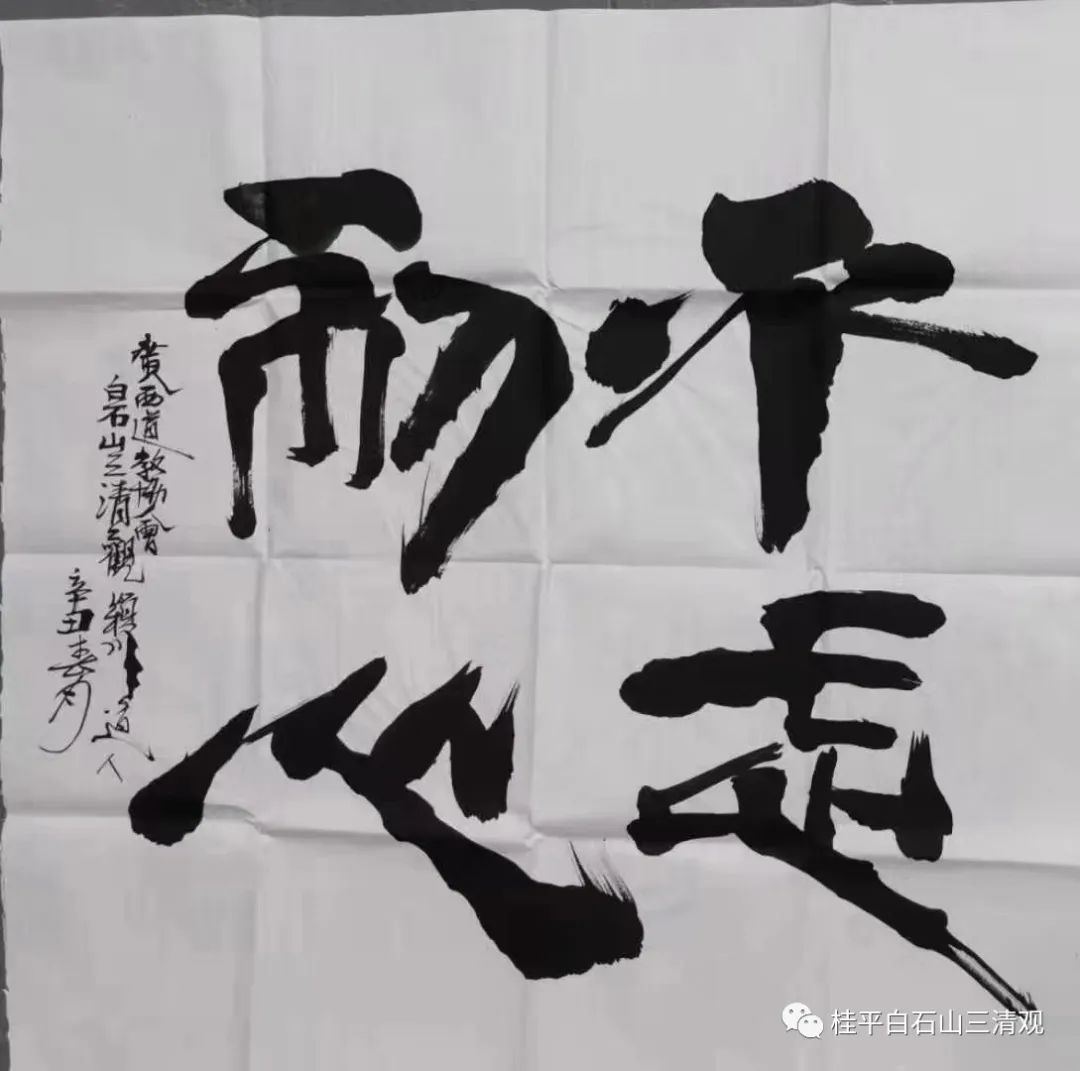 不走
而心
廣西道教協會
白石山三清觀
道人
辛丑春月
桂平白石山三清观